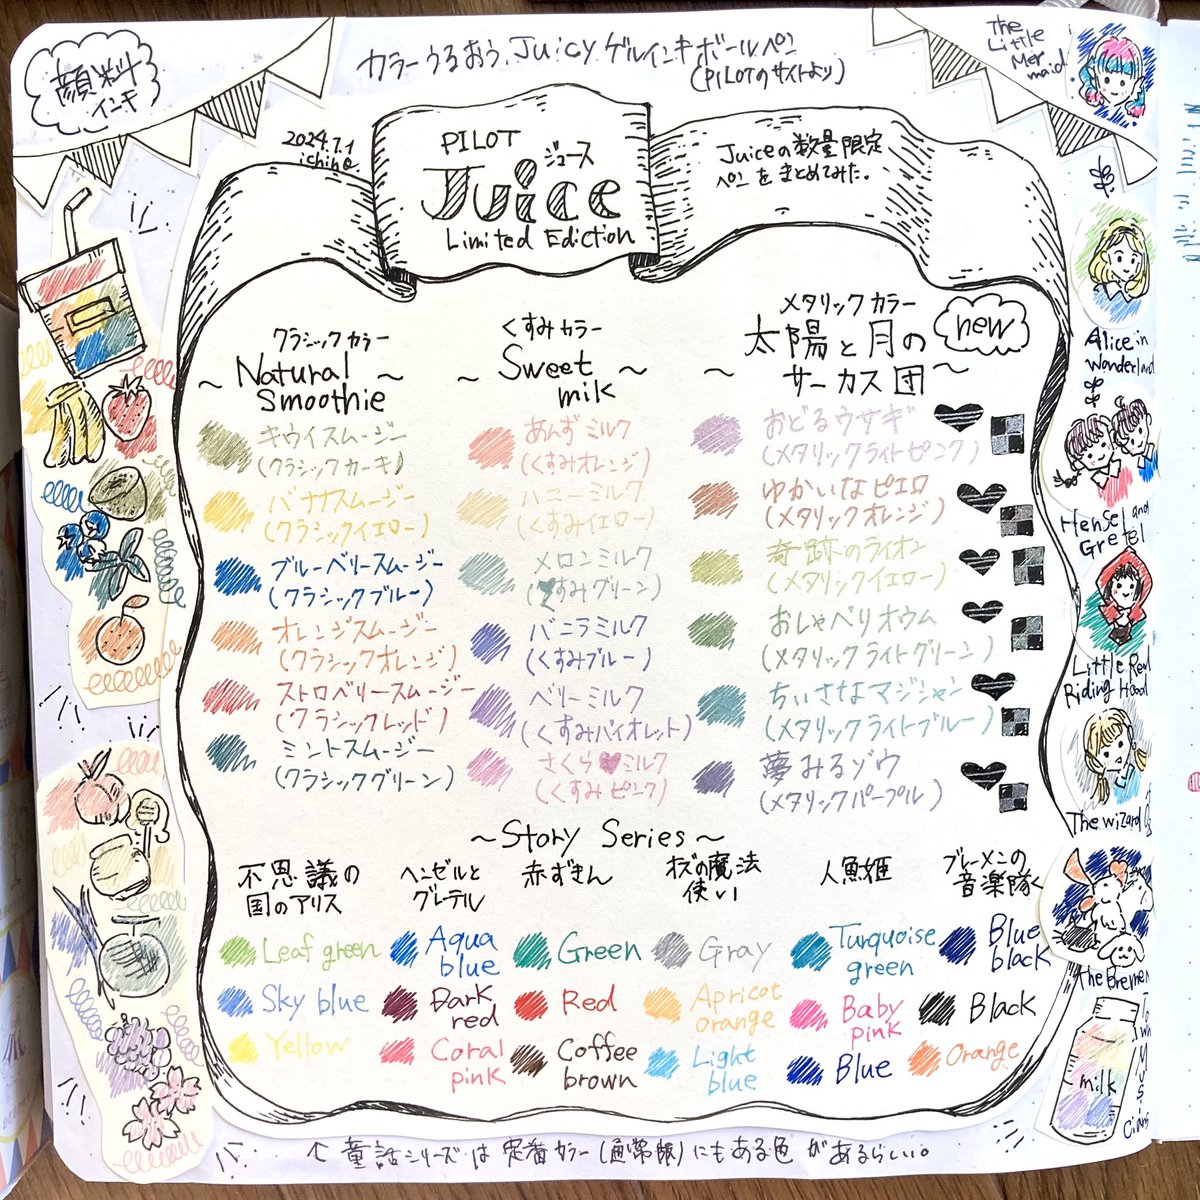 顔料
インキ
カラーうるおう、Juicyゲルインキボールペン
(PILOTのサイトより)
The
Little
Mer
maid
2024.7.1
ichino
PILOT
ジュース
Juice
Limited Edition
Juiceの数量限定
ペンをまとめてみた。
クラシックカラー
~ Natural ~
Smoothie
キウイスムージー
(クラシックカーキ)
バナナスムージー
(クラシックイエロー)
ブルーベリースムージー
(クラシックブルー)
オレンジスムージー
(クラシックオレンジ)
ストロベリースムージー
(クラシックレッド)
ミントスムージー
(クラシックグリーン)
くすみカラー
~ Sweet ~
milk
あんずミルク
(くすみオレンジ)
ハニーミルク
(くすみイエロー)
メロンミルク
(くすみグリーン)
バニラミルク
(くすみブルー)
ベリーミルク
(くすみバイオレット)
さくら♥ミルク
(くすみピンク)
メタリックカラー
太陽と月の
~ サーカス団 ~
new
おどるウサギ
(メタリックライトピンク)
ゆかいなピエロ
(メタリックオレンジ)
奇跡のライオン
(メタリックイエロー)
おしゃべりオウム
(メタリックライトグリーン)
ちいさなマジシャン
(メタリックライトブルー)
夢みるゾウ
(メタリックパープル)
Alice in
Wonderland
Hensel and
Gretel
Little Red
Riding Hood
The Wizard
The Bremen
milk
~Story Series~
不思議の
国のアリス
Leaf green
Sky blue
Yellow
ヘンゼルと
グレーテル
Aqua
blue
Dark
red
Coral
pink
赤ずきん
Green
Red
Coffee
brown
オズの魔法
使い
Gray
Apricot
orange
Light
blue
人魚姫
Turquoise
green
Baby
pink
Blue
ブレーメンの
音楽隊
Blue
black
Black
Orange
↑童話シリーズは定番カラー(通常版)にもある色があるらしい。